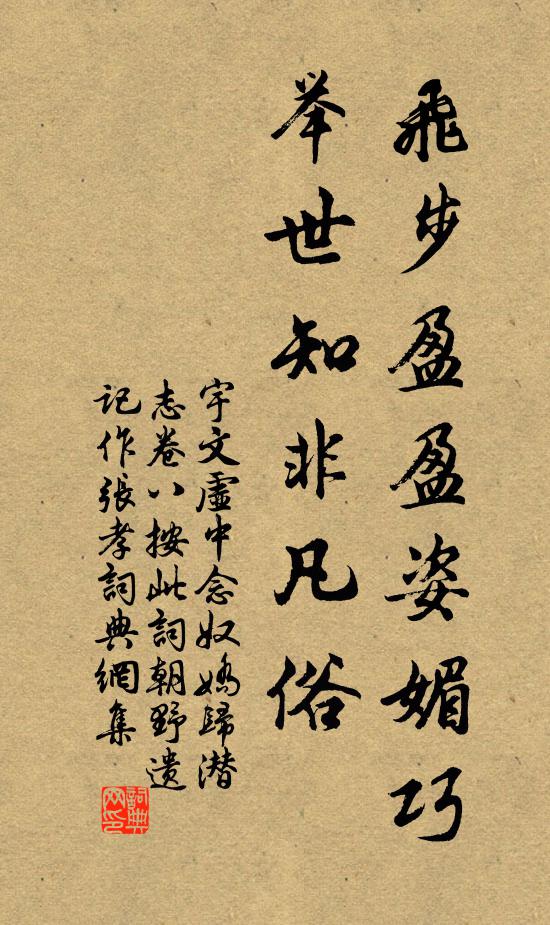 飛步盈盈姿媚巧
举世知非凡俗
宇文虛中念奴嬌歸潜
志卷八按此詞朝野遺
记作張孝詞典網集
詞典网印